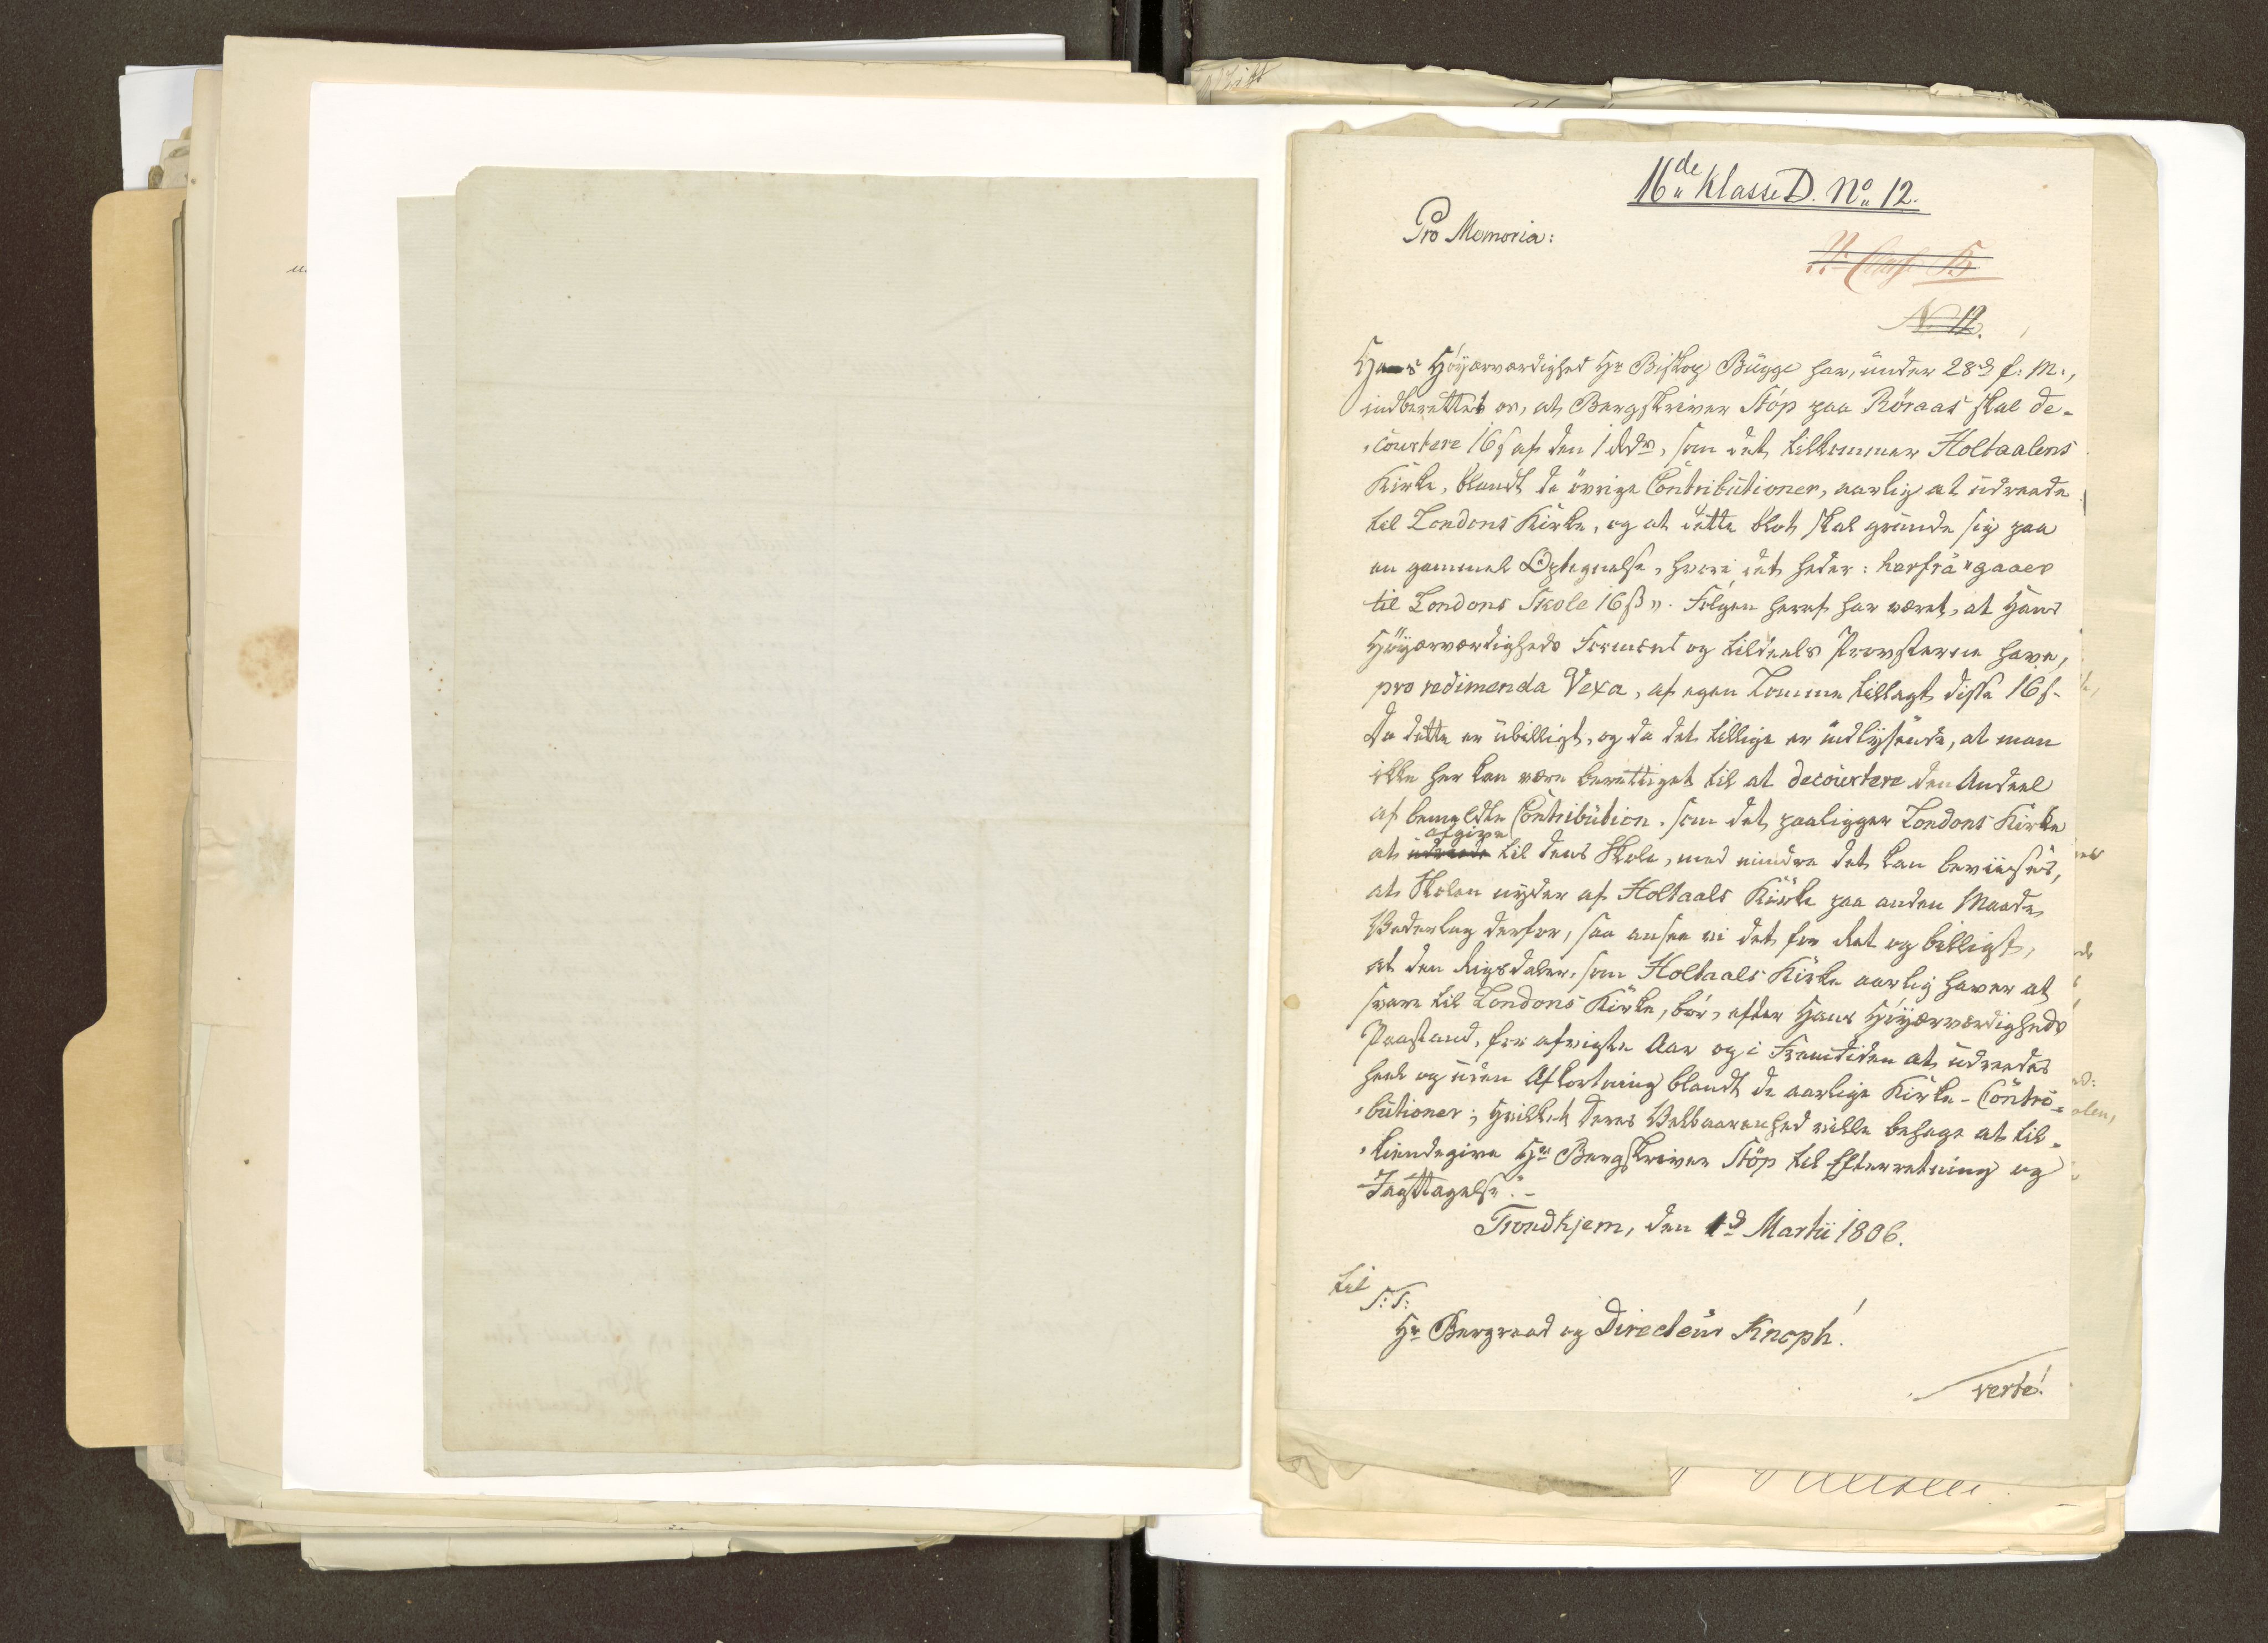 16de Klasse D. No 12.
Pro Memoria:
No 12.
Hans Höyærværdighed Hr Biskop Bugge har, under 28d f: M:,
indberettet os, at Bergskriver Stöp paa Röraas skal de-
courtere 16 s af den 1 Rdr, som det tilkommer Holtaalens
Kirke, blandt de övrige Contributioner, aarlig at udreede
til Londons Kirke, og at dette blot skal grunde sig paa
en gammel Optegnelse, hvori det heder: herfra "gaaer
til Londons Skole 16 ß". Fölgen heraf har været, at Hans
Höyærværdigheds Formænd og tildeels Provsterne have,
pro redimenda Vexa, af egen Lomme tillagt disse 16 s.
Da dette er ubilligt, og da det tillige er indlysende, at man
ikke her kan være berettiget til at decourtere den Andeel
af bemeldte Contribution, som det paaligger Londons Kirke
afgive
at udreede til dens Skole, med mindre det kan beviises,
at Skolen nyder af Holtaals Kirke paa anden Maade
Vederlag derfor, saa ansee vi det for Ret og billigt,
at den Rigsdaler, som Holtaals Kirke aarlig haver at
svare til Londons Kirke, bör, efter Hans Höyærværdigheds
Paastand, for afvigte Aar og i Fremtiden at udreedes
heel og uden Afkortning blandt de aarlige Kirke-Contri-
butioner; hvilket Deres Velbaarenhed ville behage at til-
kiendegive Hr Bergskriver Stöp til Efterretning og
Iagttagelse.-
Trondhjem, den 1d Martii 1806.
til
S: T:
Hr Bergraad og Directeur Knoph!
verte!